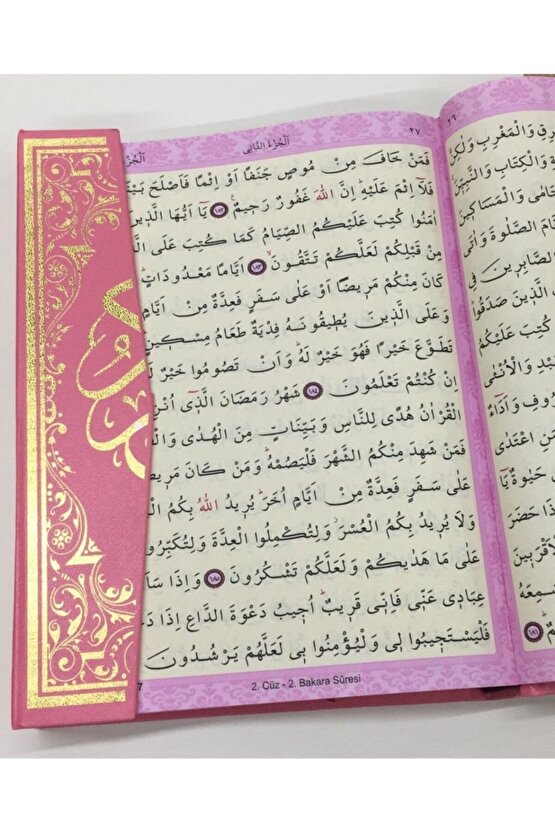 ٢٧ اَلْجُزْءُ الثَّانِي
فَمَنْ خَافَ مِنْ مُوصٍ جَنَفًا اَوْ اِثْمًا فَاَصْلَحَ
فَلَآ اِثْمَ عَلَيْهِۜ اِنَّ اللّٰهَ غَفُورٌ رَحِيمٌ۟ ﴿١٨٢﴾ يَآ اَيُّهَا الَّذِينَ
اٰمَنُوا كُتِبَ عَلَيْكُمُ الصِّيَامُ كَمَا كُتِبَ عَلَى
مِنْ قَبْلِكُمْ لَعَلَّكُمْ تَتَّقُونَۙ ﴿١٨٣﴾ اَيَّامًا مَعْدُودَاتٍۜ
كَانَ مِنْكُمْ مَرِيضًا اَوْ عَلٰى سَفَرٍ فَعِدَّةٌ مِنْ اَيَّامٍ
وَعَلَى الَّذِينَ يُطِيقُونَهُ فِدْيَةٌ طَعَامُ مِسْكِينٍۜ
تَطَوَّعَ خَيْرًا فَهُوَ خَيْرٌ لَهُۜ وَاَنْ تَصُومُوا خَيْرٌ
اِنْ كُنْتُمْ تَعْلَمُونَ ﴿١٨٤﴾ شَهْرُ رَمَضَانَ الَّذِٓي
الْقُرْاٰنُ هُدًى لِلنَّاسِ وَبَيِّنَاتٍ مِنَ الْهُدٰى
فَمَنْ شَهِدَ مِنْكُمُ الشَّهْرَ فَلْيَصُمْهُۜ وَمَنْ كَانَ
عَلٰى سَفَرٍ فَعِدَّةٌ مِنْ اَيَّامٍ اُخَرَۜ يُرِيدُ اللّٰهُ بِكُمُ
وَلَا يُرِيدُ بِكُمُ الْعُسْرَۘ وَلِتُكْمِلُوا الْعِدَّةَ وَلِتُكَبِّرُوا
عَلٰى مَا هَدٰيكُمْ وَلَعَلَّكُمْ تَشْكُرُونَ ﴿١٨٥﴾ وَاِذَا
عِبَادِي عَنِّي فَاِنِّي قَرِيبٌۜ اُجِيبُ دَعْوَةَ الدَّاعِ اِذَا
فَلْيَسْتَجِيبُوا لِي وَلْيُؤْمِنُوا بِي لَعَلَّهُمْ يَرْشُدُونَ
2. Cüz - 2. Bakara Sûresi
٢٦
وَالْمَغْرِبِ وَلٰكِنَّ
وَالْكِتَابِ وَالنَّبِيِّنَ
وَالْمَسَاكِينَ
الصَّلٰوةَ وَاٰتَى
الصَّابِرِينَ فِي
الَّذِينَ صَدَقُوا
كُتِبَ عَلَيْكُمُ
وَالْاُنْثٰى
وَاَدَٓاءٌ
اعْتَدٰى
حَيٰوةٌ يَٓا
اِذَا حَضَرَ
﴿١٨١﴾